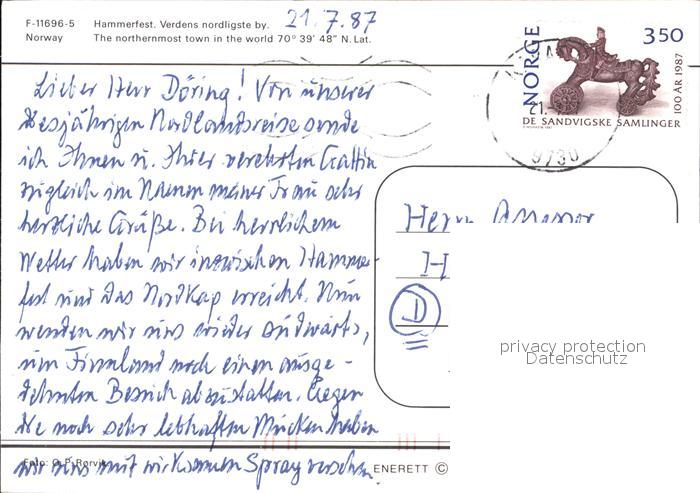 F-11696-5 Hammerfest. Verdens nordligste by. 21.7.87
Norway The northernmost town in the world 70° 39' 48" N. Lat.
NORGE 350
100 ÅR 1987
DE SANDVIGSKE SAMLINGER
21.
Lieber Herr Döring! Von unserer
diesjährigen Nordlandreise sende
ich Ihnen u. Ihrer verehrten Gattin
zugleich im Namen meiner Frau sehr
herzliche Grüße. Bei herrlichem
Wetter haben wir inzwischen Hammer-
fest und das Nordkap erreicht. Nun
wenden wir uns wieder südwärts,
um Finnland noch einen ausge-
dehnten Besuch abzustatten. Gegen
die noch sehr lebhaften Mücken haben
wir uns mit wirksamen Spray versehen.
Herrn Assessor
H
D
privacy protection
Datenschutz
Foto: O. P. Rørvik
ENERETT ©